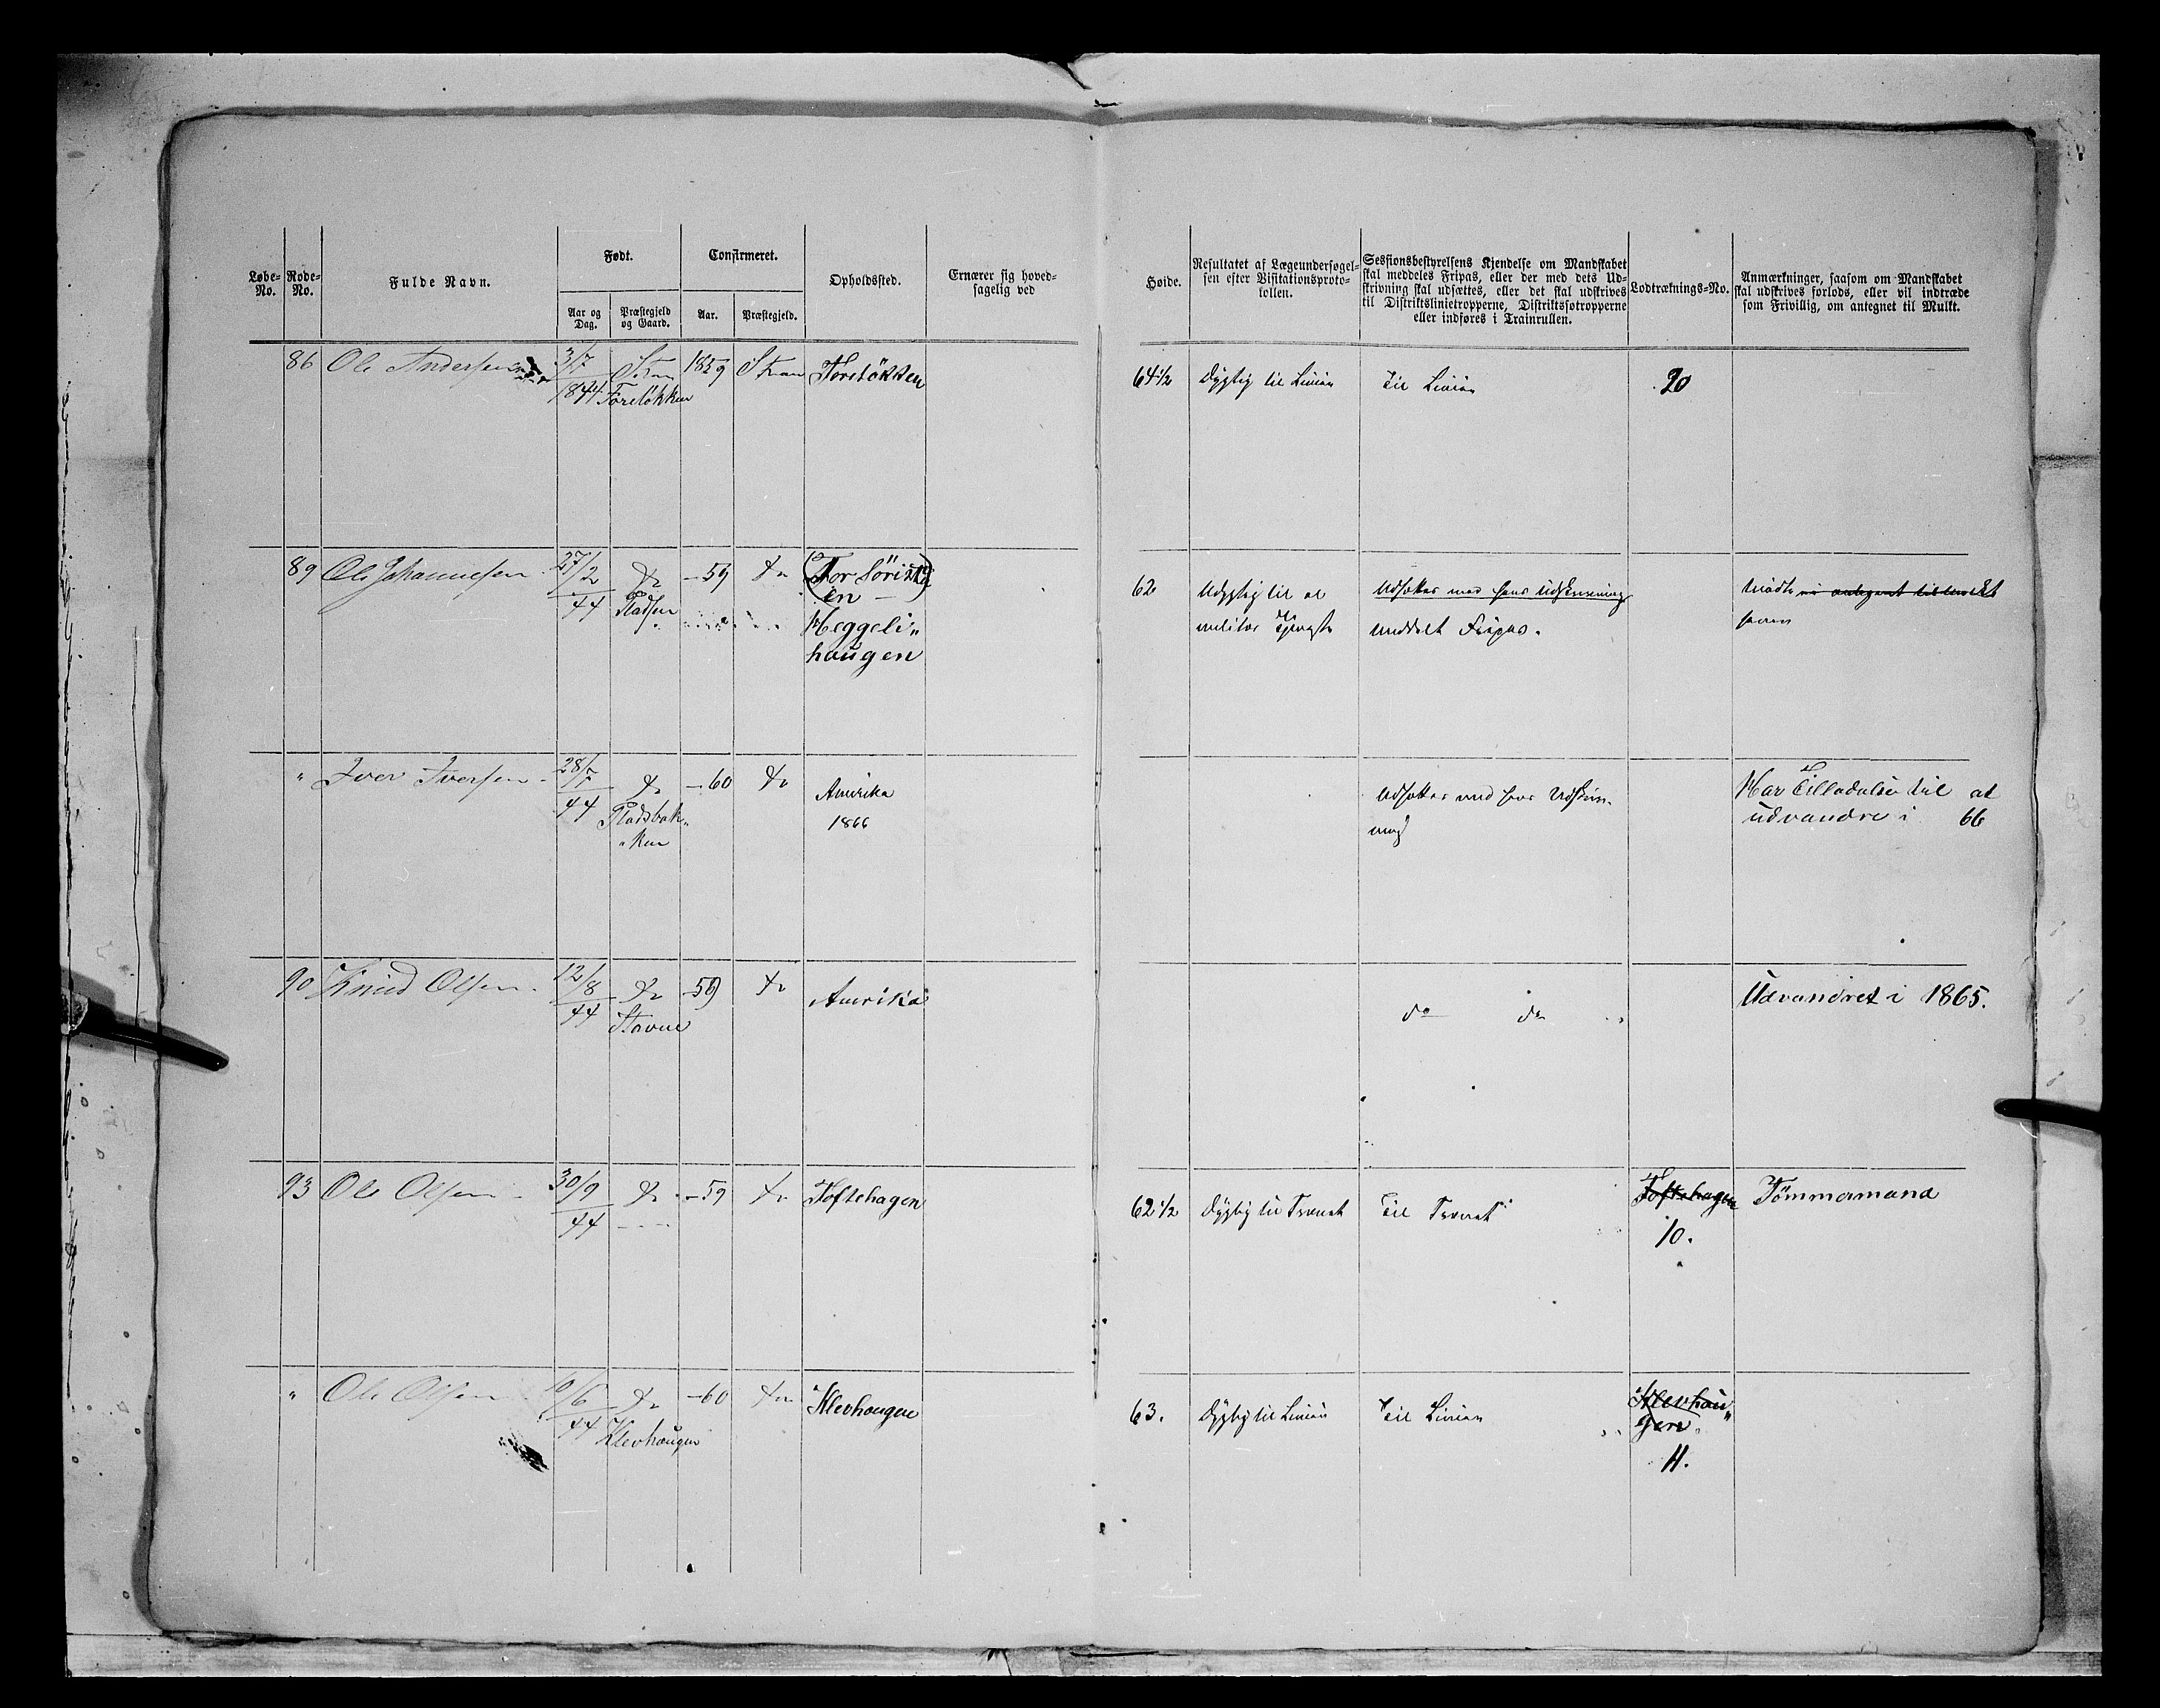 Løbe-No. Rode-No. Fulde Navn. Født. Confirmeret. Opholdssted. Ernærer sig hoved-sagelig ved
Aar og Dag. Præstegjeld og Gaard. Aar. Præstegjeld.
Høide. Resultatet af Lægeundersøgel-sen efter Visitationsproto-kollen. Sessionsbestyrelsens Kjendelse om Mandskabet skal meddeles Fripas, eller der med dets Ud-skrivning skal udsættes, eller det skal udskrives til Distriktslinietropperne, Distriktsfotropperne eller indføres i Trainrullen. Lodtræknings-No. Anmærkninger, saasom om Mandskabet skal udskrives forlods, eller vil indtræde som Frivillig, om antegnet til Mulkt.
86 Ole Andersen 3/7 1844 Foreløkken 1859 Foreløkken 64 1/2 Dygtig til Linien Til Linien 20
89 Ole Johannesen 27/2 44 do Pladsen - 59 do
Heggeli"
haugen
62 Udygtig til al
militær Tjeneste
Udsættes med hans Udskrivning
meddelt Fripas.
Mødte
" Iver Iversen 28/7 44 do Pladsbak"
"ken
- 60 do Amerika
1866
Udsættes med hans Udskriv-
ning
Har Tilladelse til at
udvandre i 66
90 Knud Olsen 12/8 44 do Stavne 59 do Amerika do do Udvandret i 1865.
93 Ole Olsen 30/9 44 do - 59 do Toftehagen 62 1/2 Dygtig til Trænet Til Trænet Toftehagen
10.
Tömmermand
" Ole Olsen 10/6 44 do Klevhaugen - 60 do Klevhaugen 63. Dygtig til Linien Til Linien Klevhau"
gen
11.